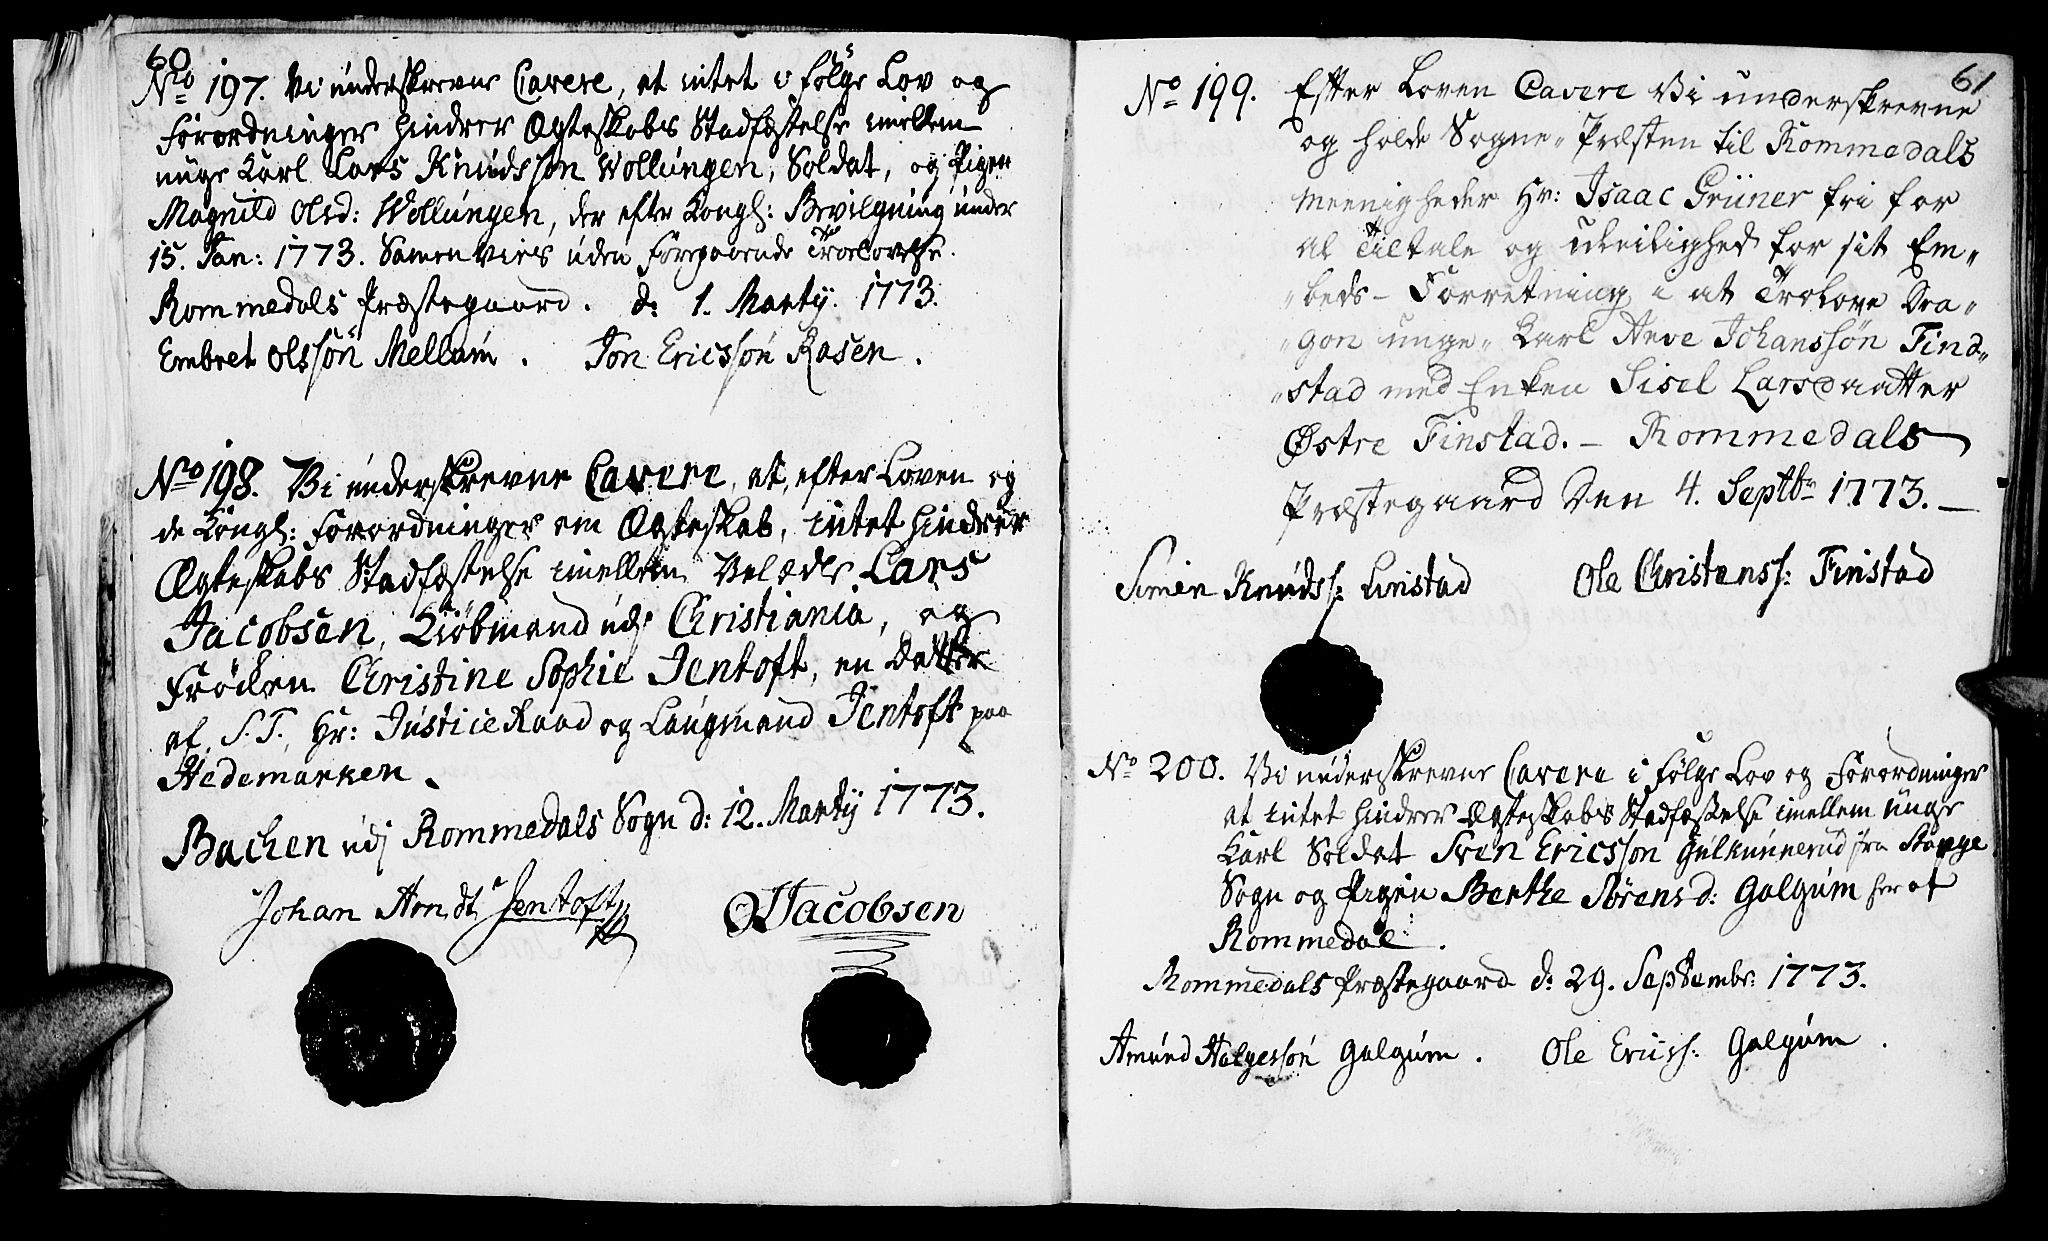 60
No 197. Vi underskrevne Cavere, at intet i følge Lov og
Forordninger hindrer Ægteskabs Stadfæstelse imellem
unge Karl Lars Knudssøn Wollungen, Soldat, og Pigen
Magnild Olsd: Wollungen, der efter Kongl: Bevilgning under
15. Jan: 1773. Samenvies uden foregaaende Troelovelse.
Rommedals Præstegaard. d: 1. Marty. 1773.
Embret Olssøn Mellum. Jon Ericssøn Rosen.
No 198. Vi underskrevne Cavere, at, efter Loven og
de Kongl: Forordninger om Ægteskab, intet hindrer
Ægteskabs Stadfæstelse imellem Velædle Lars
Jacobsen, Kiøbmand udj Christiania, og
Frøiken Christine Sophie Jentoft, en Datter
af S. T. Hr: Justice Raad og Laugmand Jentoft paa
Hedemarken.
Bachen udj Rommedals Sogn d: 12. Marty 1773.
Johan Arndt Jentoft
Jacobsen
61
No 199. Efter Loven Cavere Vi underskrevne
og holde Sogne-Præsten til Rommedals
Meenigheder Hr: Isaac Grüner fri for
al Tiltale og uleilighed for sit Em„
„beds-Forretning i at Trolove Dra„
„gon unge-Karl Arve Johanssøn Find„
„stad med Enken Sisel Larsdaatter
Østre Finstad. – Rommedals
Præstegaard Den 4. Septbr 1773. –
Simen Knudss: Linstad Ole Christenss: Finstad
No 200. Vi underskrevne Cavere i følge Lov og Forordninger
at intet hindrer Ægteskabs Stadfæstelse imellem unge
Karl Soldat Sven Ericssøn Gulkunnerud fra Stange
Sogn og Pigen Berthe Sørensd: Galgum her af
Rommedal.
Rommedals Præstegaard d: 29. Septembr: 1773.
Amund Halgessøn Galgum. Ole Ericss: Galgum.